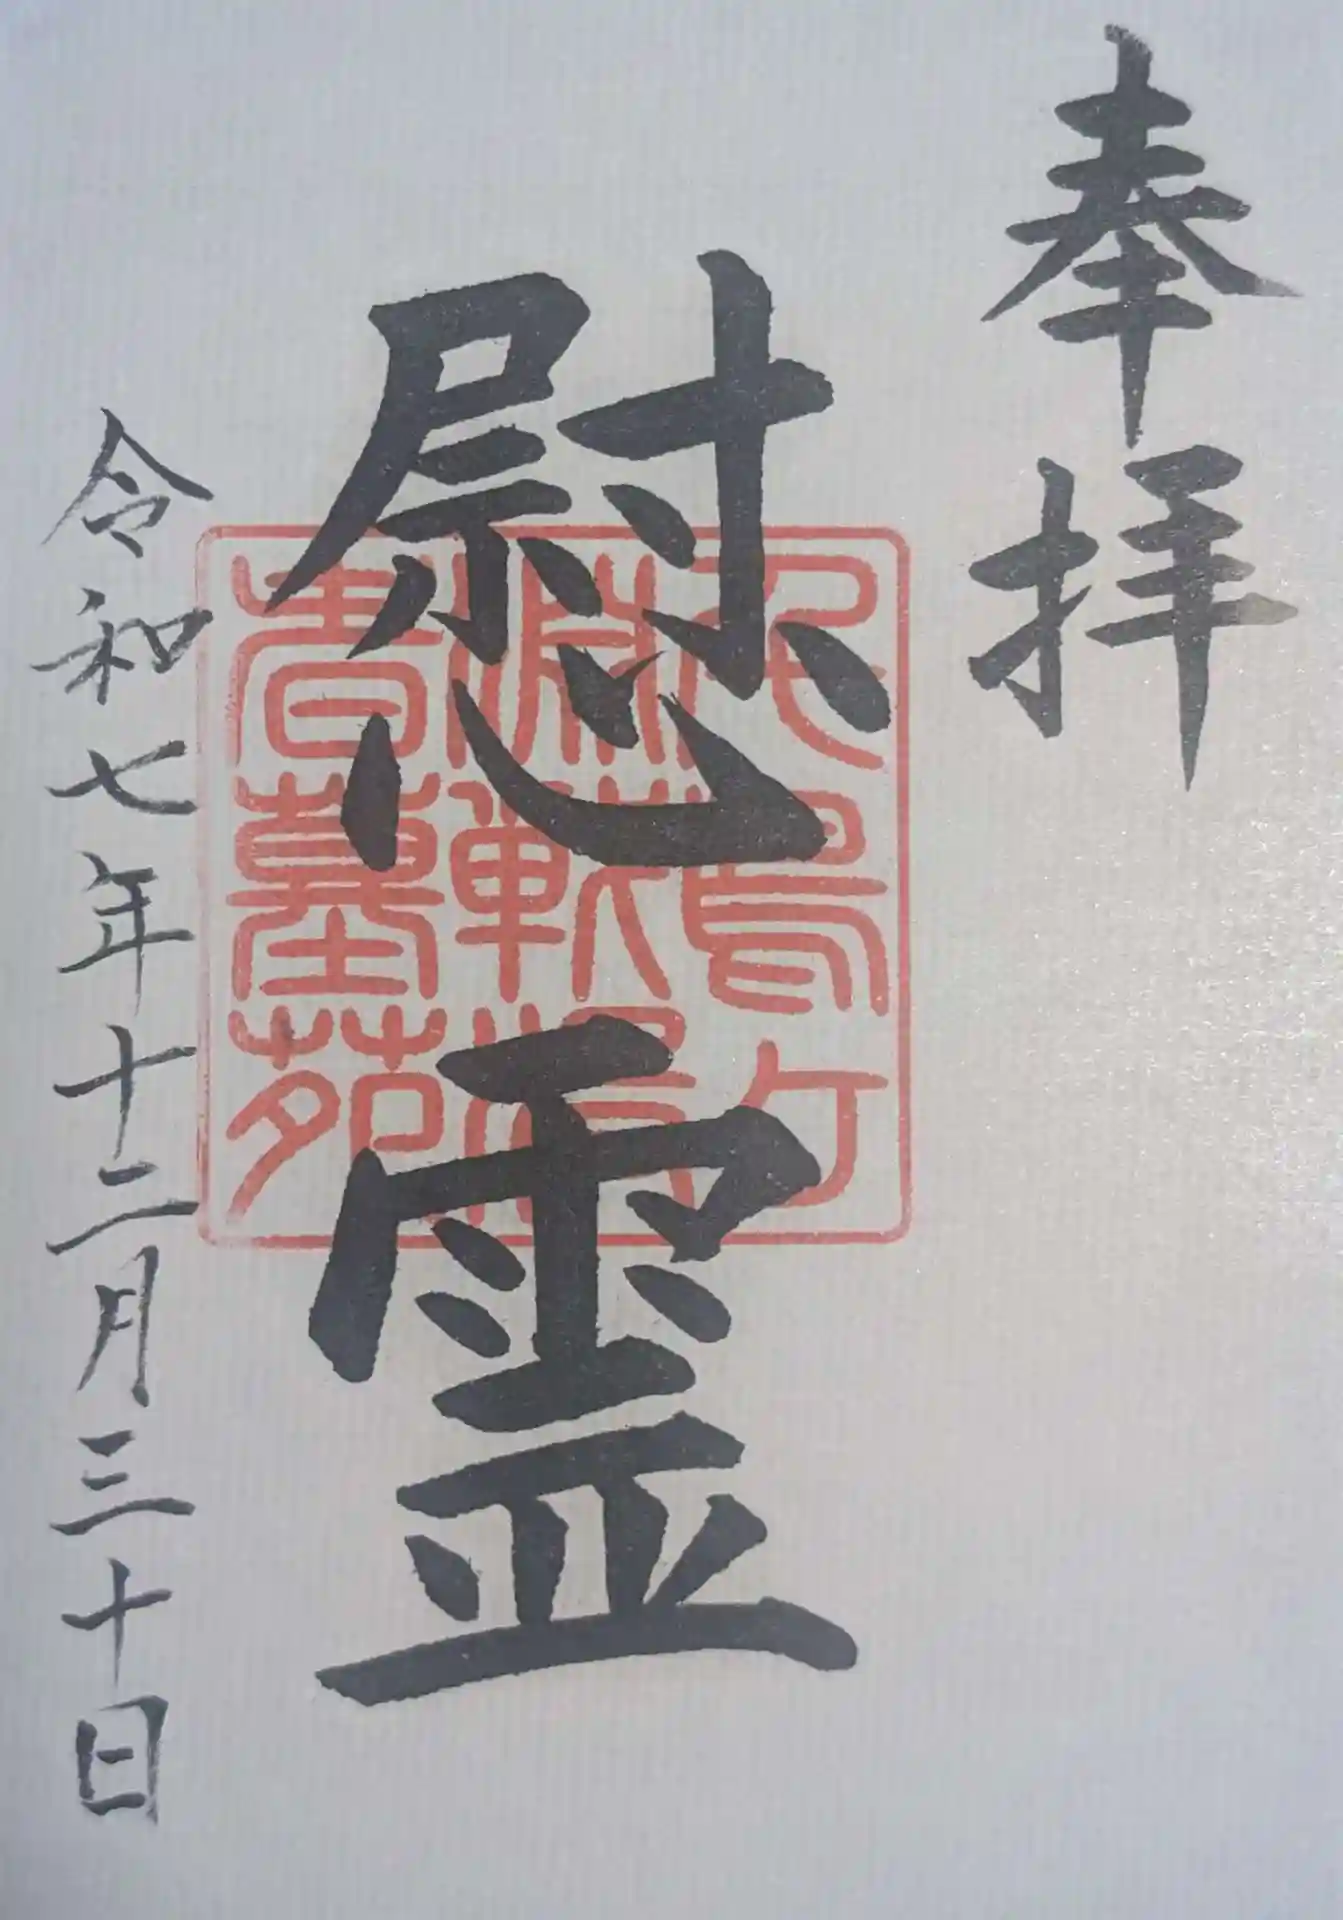 奉拝
慰霊
千鳥ヶ
淵戰歿
者墓苑
令和七年十二月三十日